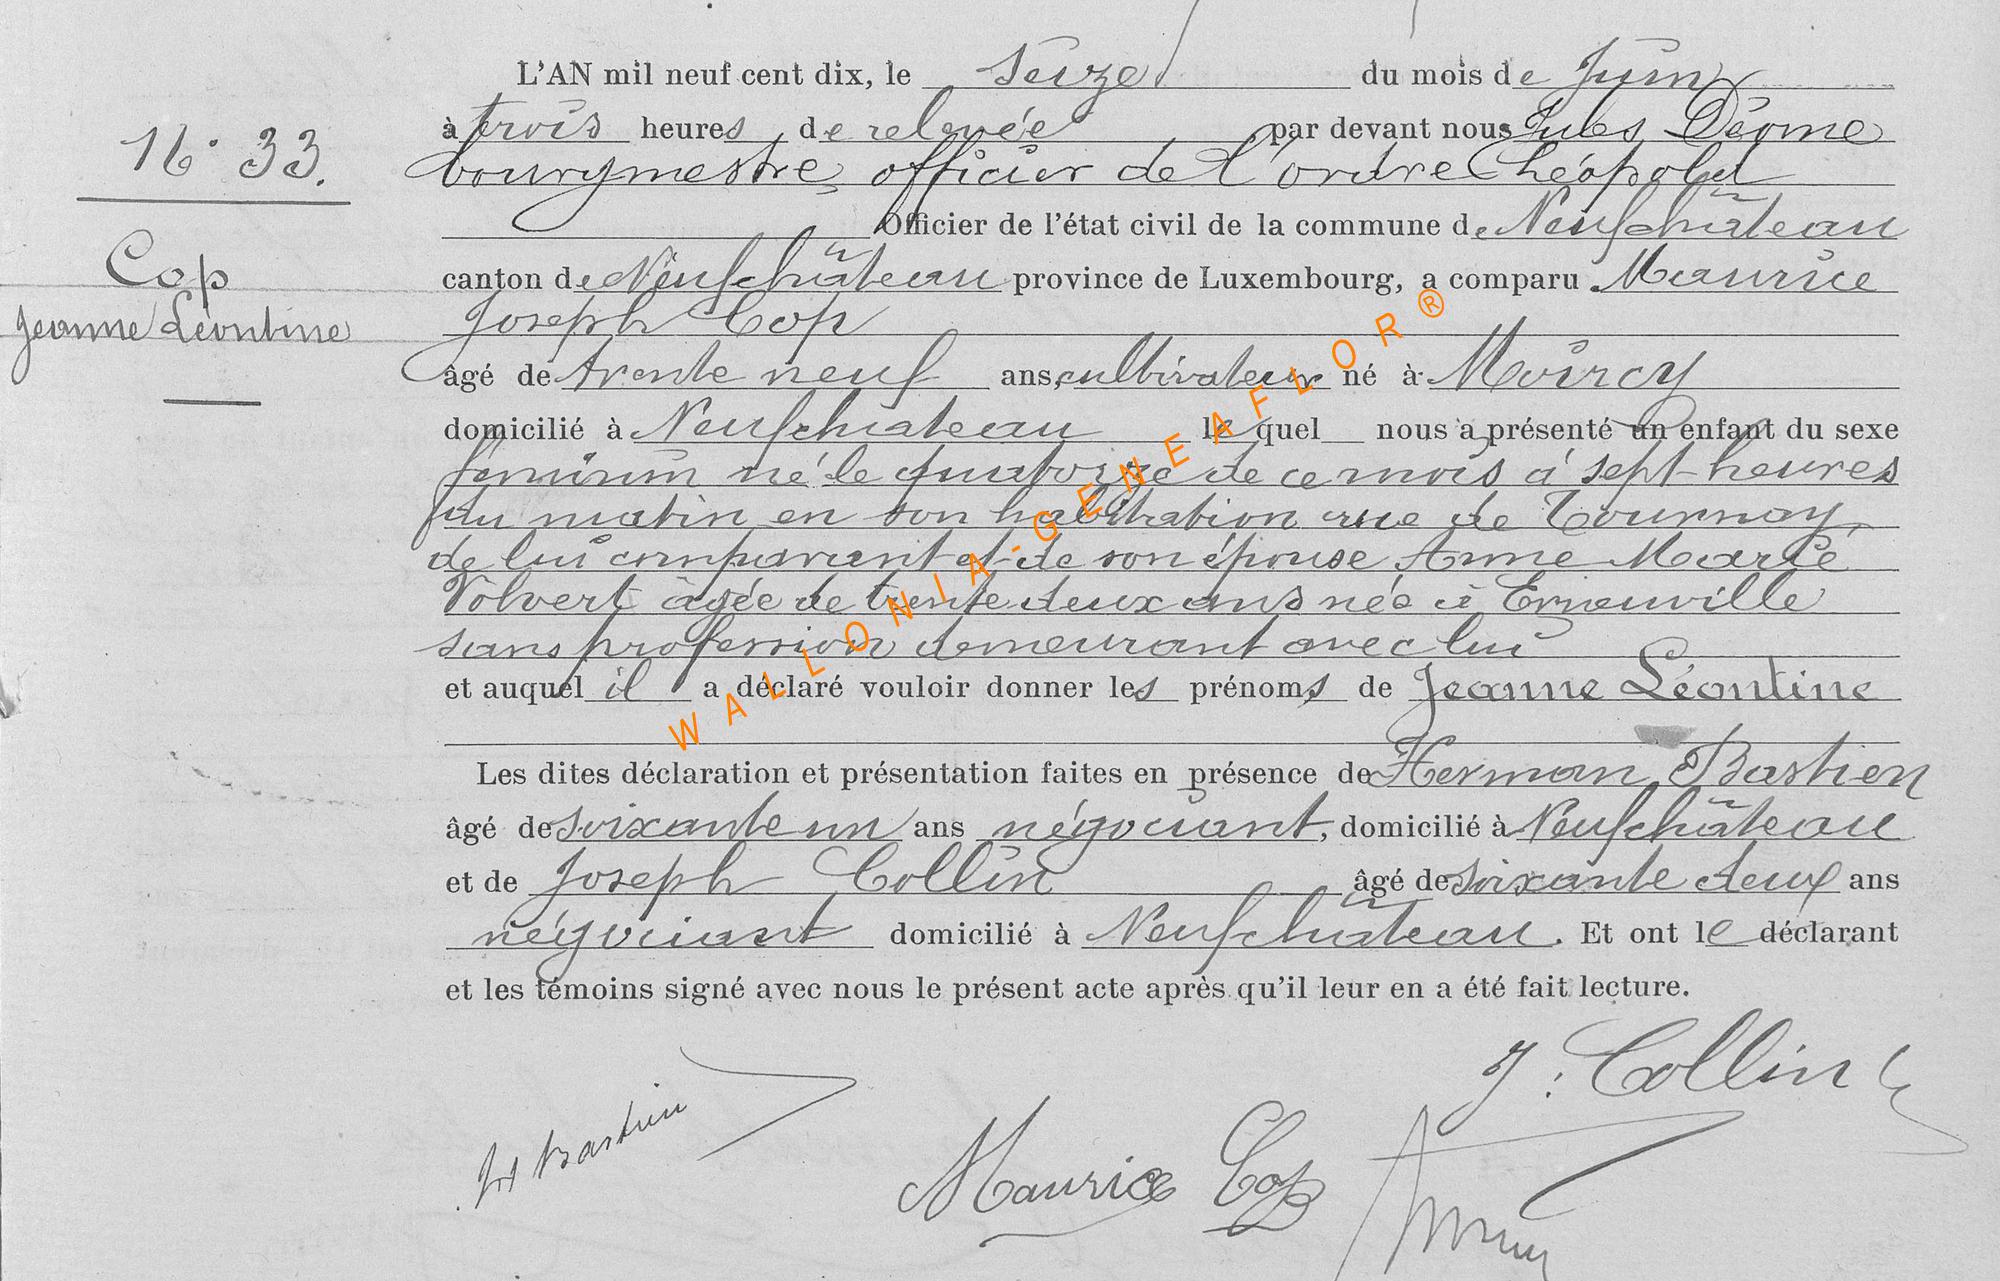 N° 33.
Cop
Jeanne Léontine
L'AN mil neuf cent dix, le seize du mois de Juin
à trois heures de relevée par devant nous Jules Dérome
bourgmestre, officier de l'ordre Léopold
Officier de l'état civil de la commune de Neufchâteau
canton de Neufchâteau province de Luxembourg, a comparu Maurice
Joseph Cop
âgé de trente neuf ans, cultivateur né à Moircy
domicilié à Neufchateau lequel nous a présenté un enfant du sexe
féminin né le quatorze de ce mois à sept heures
du matin en son habitation rue de Tournay
de lui comparant et de son épouse Anne Marie
Volvert âgée de trente deux ans née à Erneuville
sans profession demeurant avec lui
et auquel il a déclaré vouloir donner les prénoms de Jeanne Léontine
Les dites déclaration et présentation faites en présence de Herman Bastien
âgé de soixante un ans négociant, domicilié à Neufchâteau
et de Joseph Collin âgé de soixante deux ans
négociant domicilié à Neufchâteau. Et ont le déclarant
et les témoins signé avec nous le présent acte après qu'il leur en a été fait lecture.
J. Collin
Bastien
Maurice Cop
WALLONIA-GENEAFLOR®